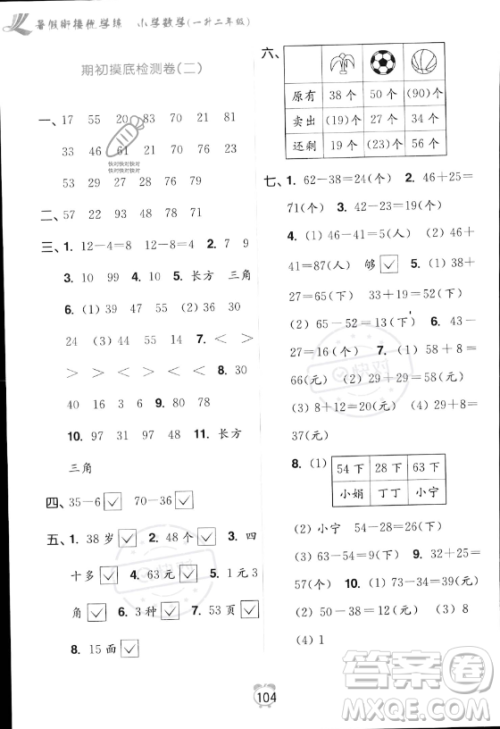 暑假衔接优学练 小学数学(一升二年级)
期初摸底检测卷(二)
一、 17 55 20 83 70 21 81
33 46 61 21 70 93 66
快对快对快对
快对快对快对
53 29 51 79 28 78
二、 57 22 98 55 78
三、 1. 12-4=8 12-8=4 2. 49
50 3. 100 4. 10 5. 长方 三角
6. (1) 39 40 42 (2) 30
24 (3) 44 55 7. < < >
> > < > < 8. 30
60 52 34 30 9. 31
10. 97 31 98 11. 长方
三角
四、 35-6 ✓ 70-36 ✓
五、 1. 38岁 ✓ 2. 48个 ✓ 3. 四
十多 ✓ 4. 63元 ✓ 5. 1元3
角 ✓ 6. 3种 ✓ 7. 53页 ✓
8. 15面 ✓
六、
原有 38个 50个 (90)个
卖出 (19)个 27个 34个
还剩 19个 (23)个 56个
七、 1. 62-38=24(个) 2. 46+25=
71(个) 3. 42-23=19(个)
4. (1) 46-41=5(人) (2) 46+
41=87(人) 够 ✓
5. (1) 29+36=65(下)
(2) 65-52=13(下) 6. 8+
58=66(元) 7. (1) 58+8=
66(元) (2) 29+29=58(元)
(3) 8+12=20(元) 20+17=
37(元)
8. (1) 54下 28下 63下
小娟 丁丁 小宁
(2) 小宁 54-28=26(下)
(3) 63-54=9(下) 9. 73-
34=39(元) 10. (1) 38
(2) 50-38=12(元) (3) 8
(4) 1
104
答案圈